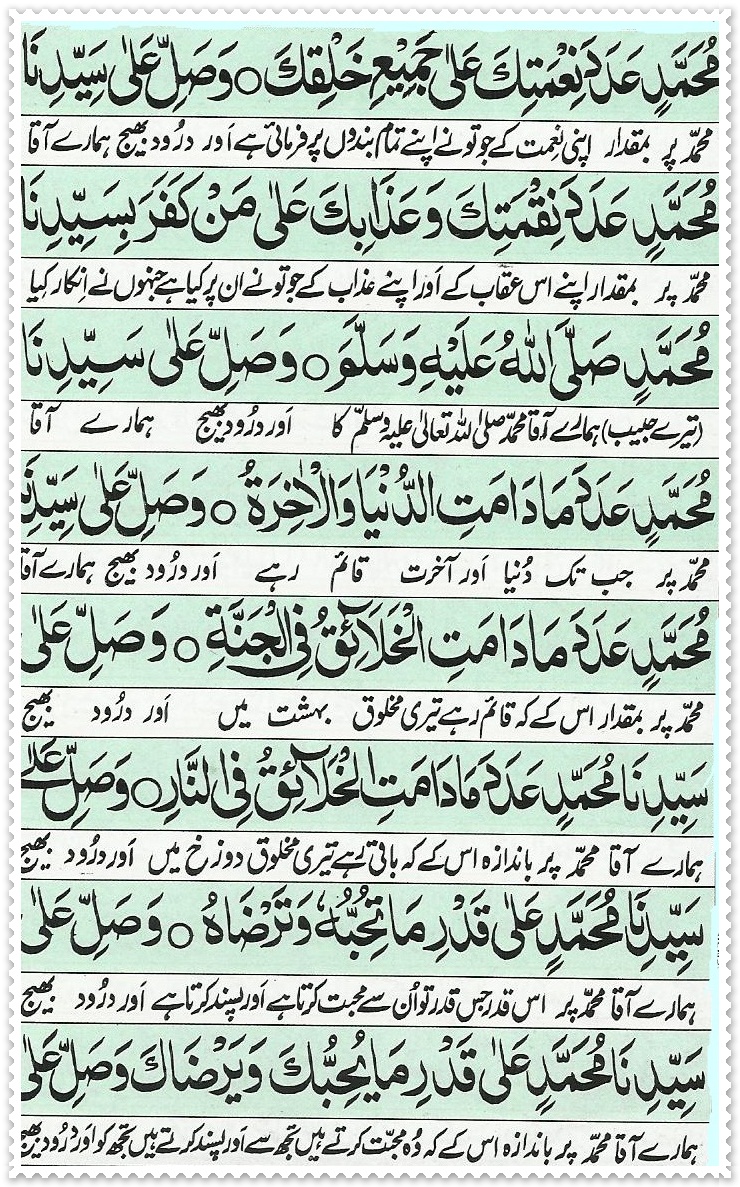 مُحَمَّدٍ عَدَدَ نِعْمَتِكَ عَلٰى جَمِيْعِ خَلْقِكَ ○ وَصَلِّ عَلٰى سَيِّدِنَا
محمدؐ پر بمقدار اپنی نِعمت کے جو تونے اپنے تمام بندوں پر فرمائی ہے اَور درُود بھیج ہمارے آقا
مُحَمَّدٍ عَدَدَ نِقْمَتِكَ وَعَذَابِكَ عَلٰى مَنْ كَفَرَ بِسَيِّدِنَا
محمدؐ پر بمقدار اپنے اس عقاب کے اَور اپنے عذاب کے جو تونے ان پر کیا ہے جنہوں نے اِنکار کِیا
مُحَمَّدٍ صَلَّى اللهُ عَلَيْهِ وَسَلَّمَ ○ وَصَلِّ عَلٰى سَيِّدِنَا
(تیرے حبیب) ہمارے آقا محمدؐ صلی اللہ تعالیٰ علیہ وسلم کا اَور درُود بھیج ہمارے آقا
مُحَمَّدٍ عَدَدَ مَادَامَتِ الدُّنْيَا وَالْاٰخِرَةُ ○ وَصَلِّ عَلٰى سَيِّدِنَا
محمدؐ پر جب تک دُنیا اَور آخرت قائم رہے اَور درُود بھیج ہمارے آقا
مُحَمَّدٍ عَدَدَ مَادَامَتِ الْخَلَآئِقُ فِى الْجَنَّةِ ○ وَصَلِّ عَلٰى
محمدؐ پر بمقدار اس کے کہ قائم رہے تیری مخلوق بہشت میں اَور درُود بھیج
سَيِّدِنَا مُحَمَّدٍ عَدَدَ مَادَامَتِ الْخَلَآئِقُ فِى النَّارِ ○ وَصَلِّ عَلٰى
ہمارے آقا محمدؐ پر باندازہ اس کے کہ باقی رہے تیری مخلوق دوزخ میں اَور درُود بھیج
سَيِّدِنَا مُحَمَّدٍ عَلٰى قَدْرِ مَا تُحِبُّهٗ وَتَرْضَاهُ ○ وَصَلِّ عَلٰى
ہمارے آقا محمدؐ پر اس قدر جس قدر تو اُن سے محبت کرتا ہے اَور پسند کرتا ہے اَور درُود بھیج
سَيِّدِنَا مُحَمَّدٍ عَلٰى قَدْرِ مَا يُحِبُّكَ وَيَرْضَاكَ وَصَلِّ عَلٰى
ہمارے آقا محمدؐ پر باندازہ اس کے کہ وُہ محبّت کرتے ہیں تجھ سے اَور پسند کرتے ہیں تجھ کو اَور درُود بھیج